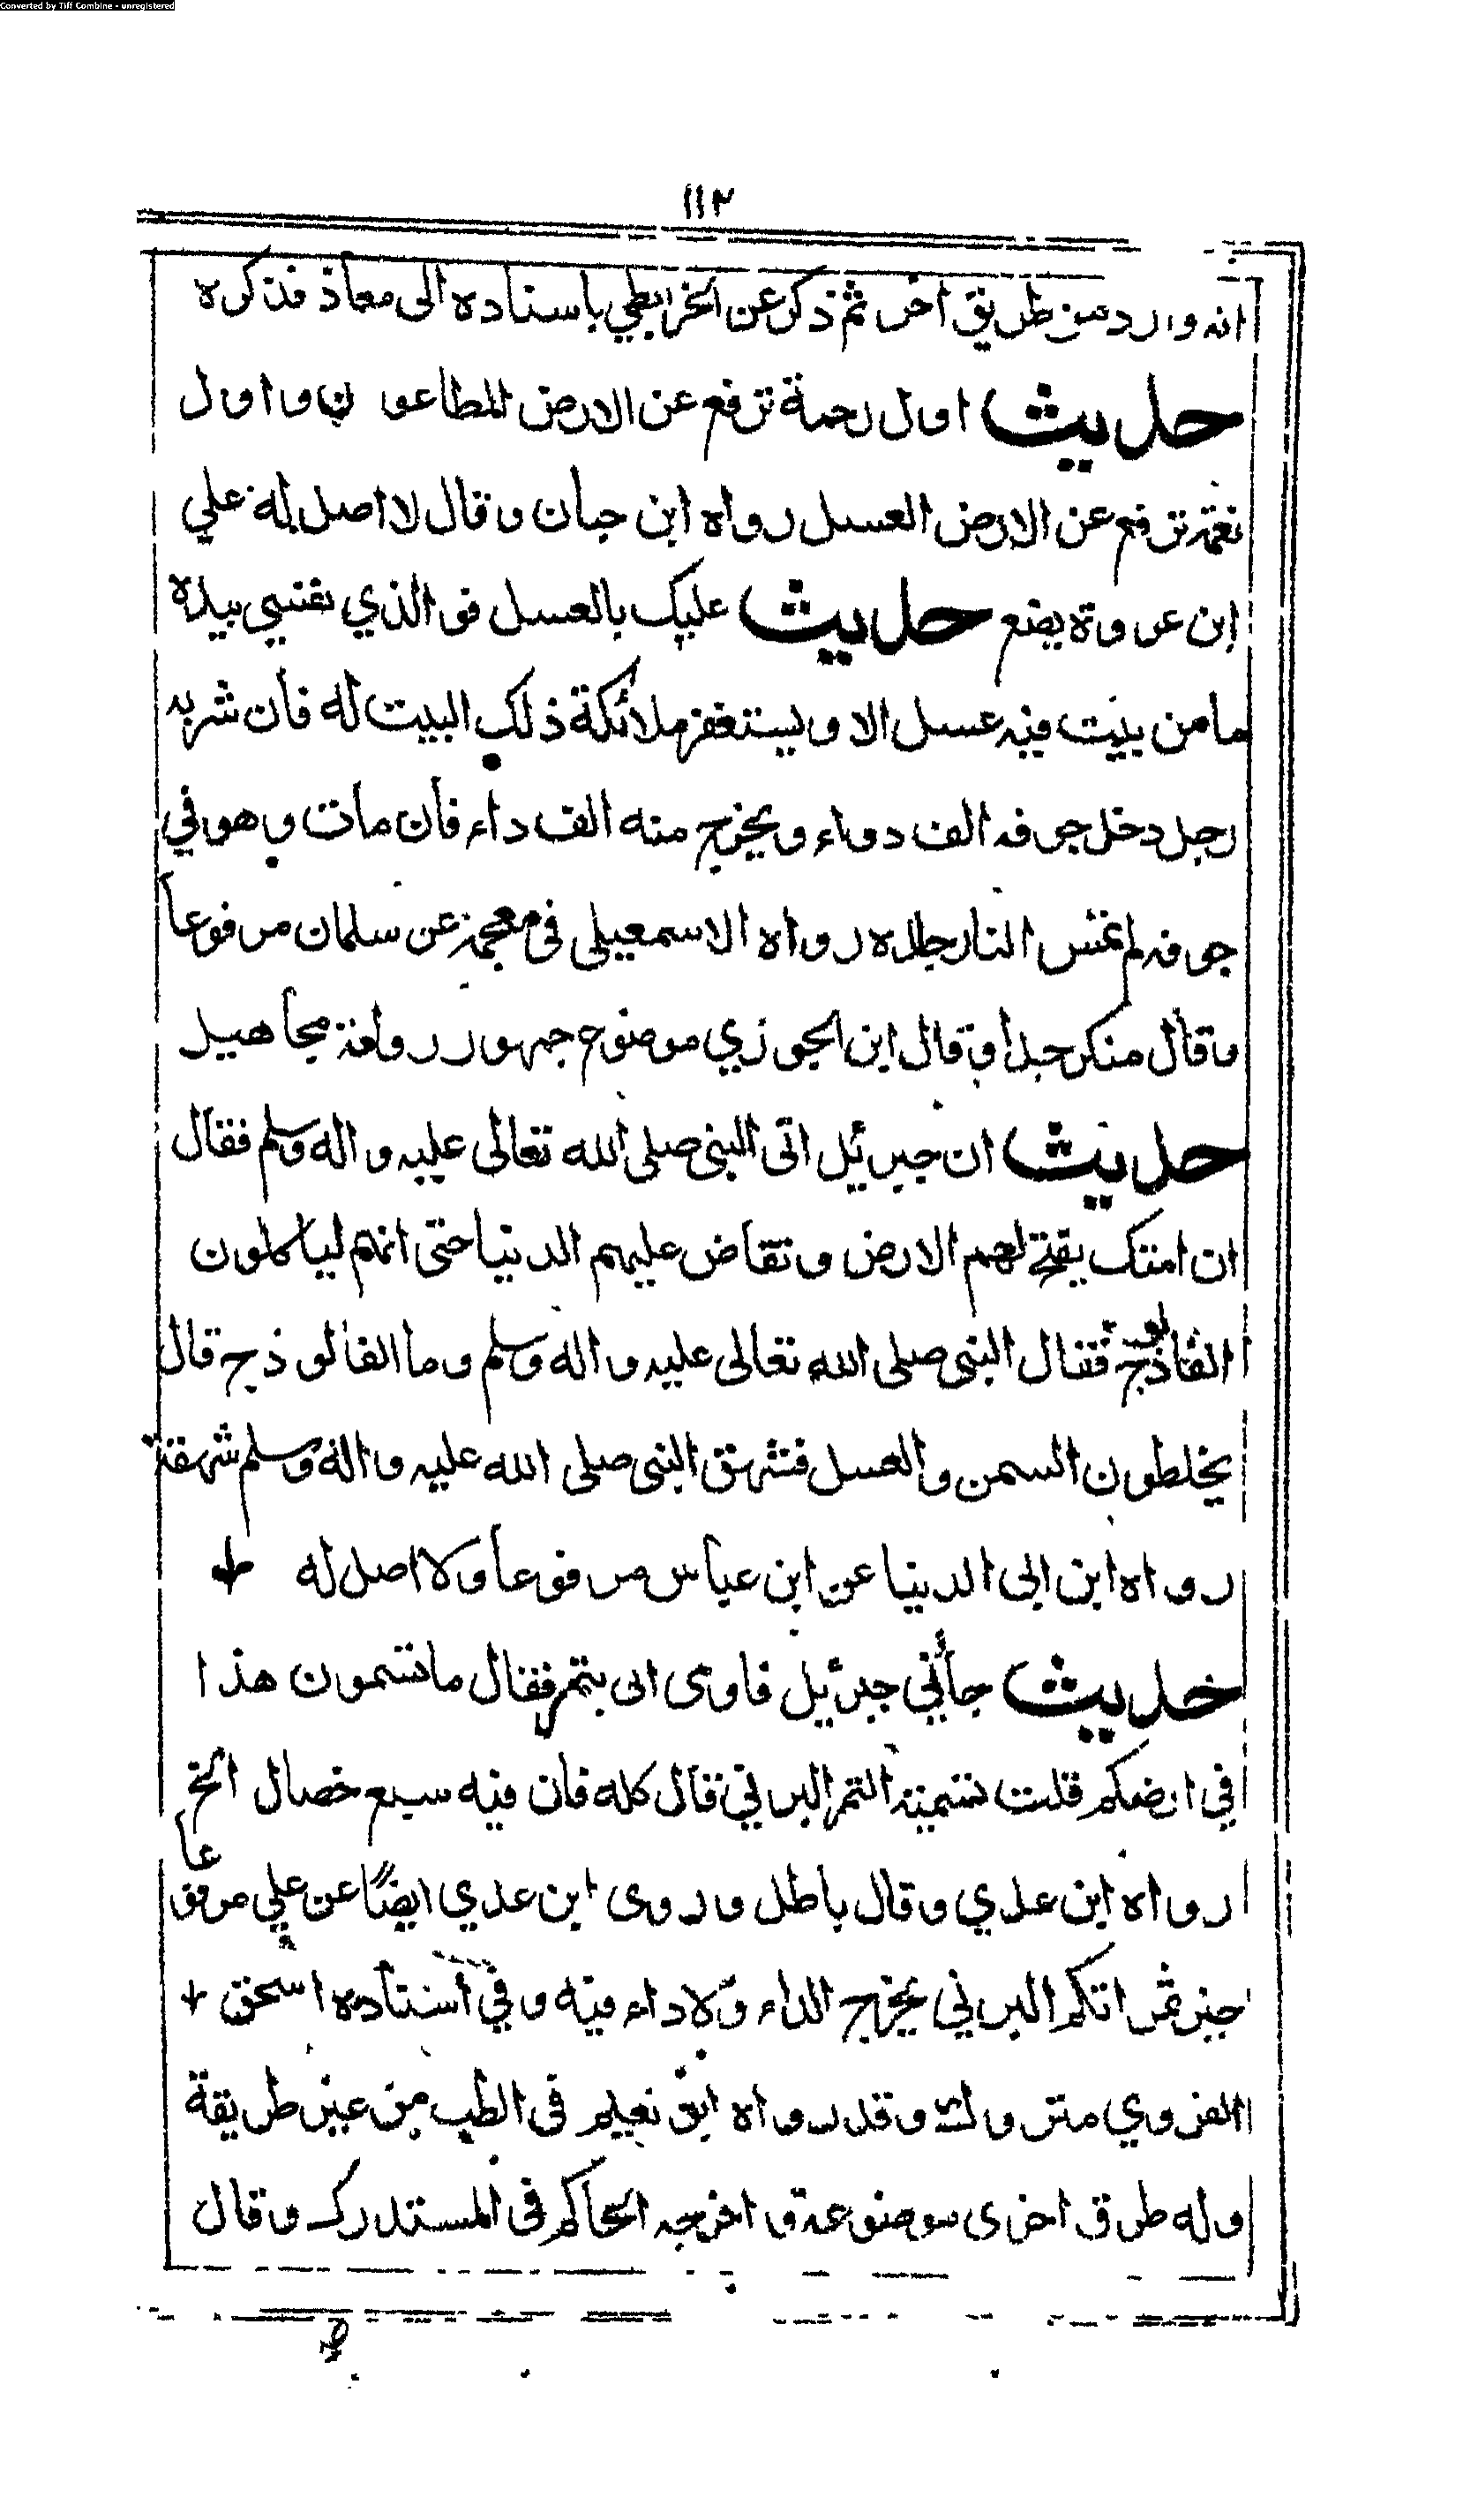 Converted by Tiff Combine - unregistered
١١٢
انه وارد من طريق اخر ثم ذكر عن الخرايطي باسناده الى معاذ فذكره
حديث اول رحمة ترفع عن الارض الطاعون و اول
نعمة ترفع عن الارض العسل رواه ابن حبان وقال لا اصل له علي
ابن عروة يضع حديث عليك بالعسل فوالذي نفسي بيده
ما من بيت فيه عسل الا ويستغفر ملائكة ذلك البيت له فان شربه
رجل دخل جوفه الف دواء ويخرج منه الف داء فان مات وهو في
جوفه لم تمس النار جلده رواه الاسمعيلى فى معجمه عن سلمان مرفوعا
وقال منكر جدا وقال ابن الجوزي موضوع جمهور رواته مجاهيل
حديث ان جبرئيل اتى النبى صلى الله تعالى عليه واله وسلم فقال
ان امتك يفتح لهم الارض وتفاض عليهم الدنيا حتى انهم لياكلون
الفالوذج فقال النبى صلى الله تعالى عليه واله وسلم وما الفالوذج قال
يخلطون السمن والعسل فشهق النبى صلى الله عليه واله وسلم شهقة
رواه ابن ابى الدنيا عن ابن عباس مرفوعا ولا اصل له
حديث جاءني جبرئيل فاوى الى بتمر فقال ما تسمون هذا
في ارضكم قلت نسميه التمر البرني قال كله فان فيه سبع خصال الخ
رواه ابن عدي وقال باطل وروى ابن عدي ايضًا عن علي مرفوعا
خير تمراتكم البرني يخرج الداء ولا داء فيه وفي اسناده اسحق
الفروي متروك وقد رواه ابو نعيم فى الطب من غير طريقة
وله طرق اخرى موضوعة و اخرجه الحاكم فى المستدرك وقال